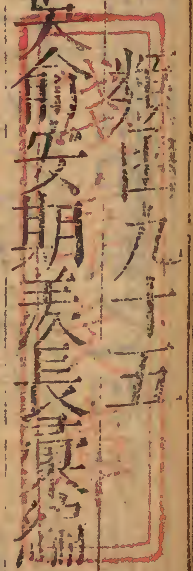 類函九十五
吳俞安期羡長彙編